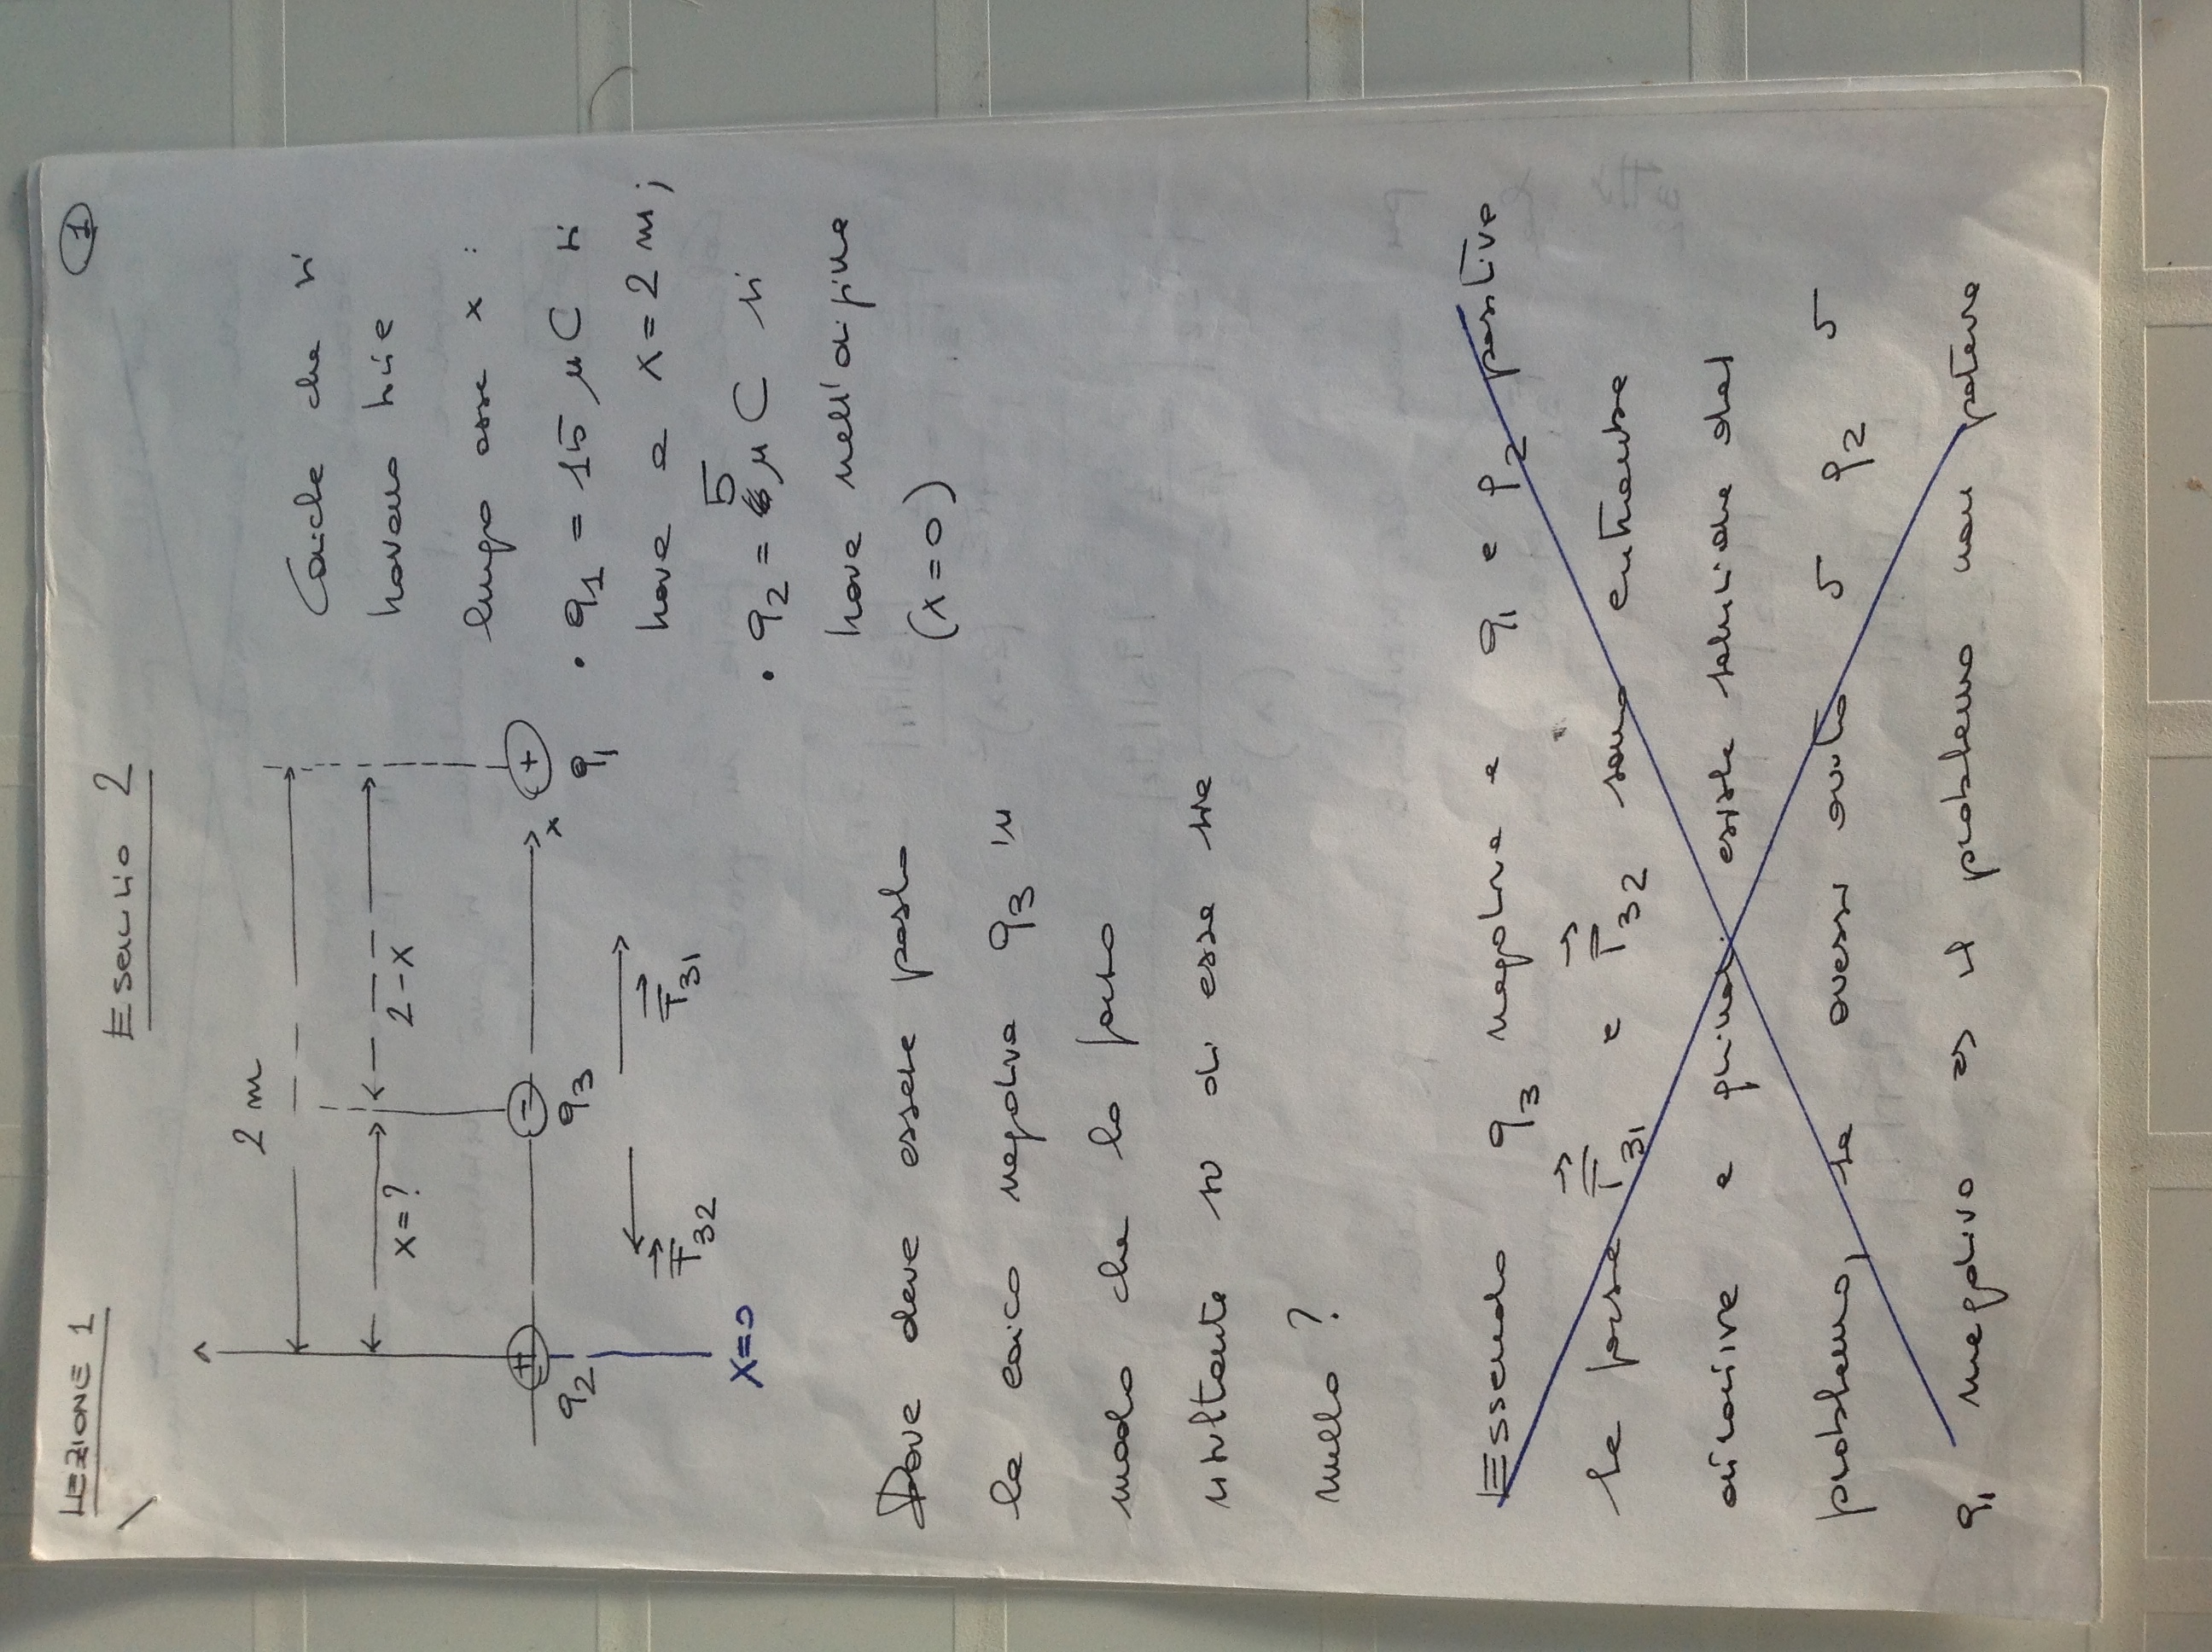 LEZIONE 1
1
Esercizio 2
2 m
x=?
2-x
x
q2
q3
q1
F32
F31
x=0
Cariche che si
trovano tutte
lungo asse x :
• q1 = 15 μC si
trova a x = 2 m;
• q2 = 5 μC si
trova nell'origine
(x=0)
Dove deve essere posta
la carica negativa q3 in
modo che la forza
risultante su di essa sia
nulla ?
Essendo q3 negativa e q1 e q2 positive
le forze F31 e F32 sono entrambe
attrattive e quindi esiste soluzione del
problema, se avessi avuto o q2 o
q1 negativa => il problema non poteva